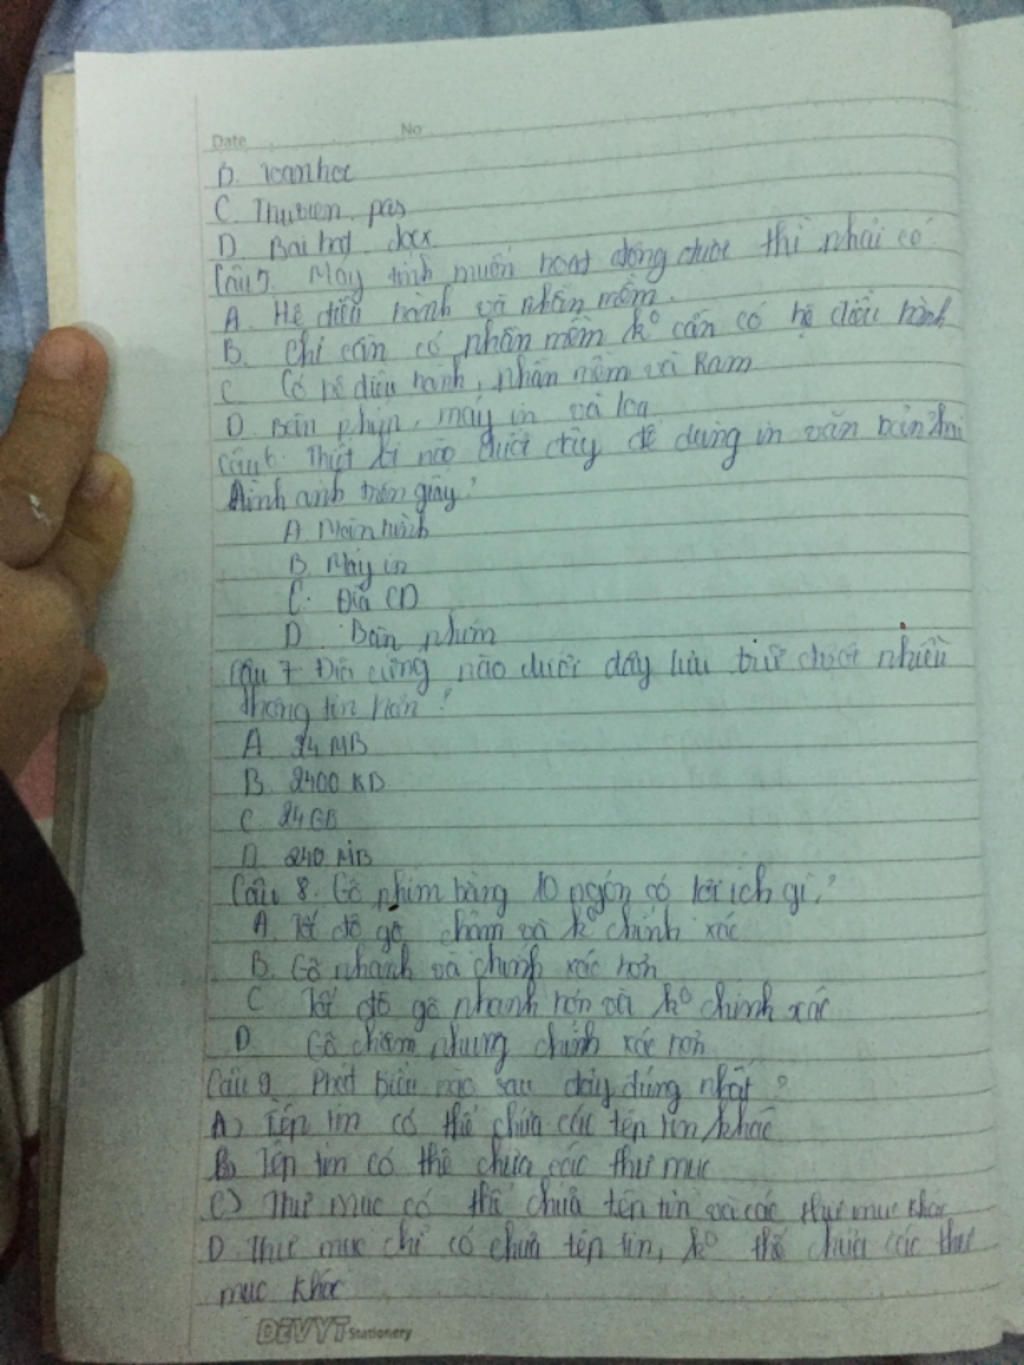 Date No
B. Toanhoc
C. Thuvien. pas
D. Bai hat. docx
Câu 5. Máy tính muốn hoạt động được thì phải có
A. Hệ điều hành và phần mềm.
B. Chỉ cần có phần mềm k° cần có hệ điều hành
C Có hệ điều hành, phần mềm và Ram
D. Bàn phím, máy in và loa
Câu 6. Thiết bị nào dưới đây để dùng in văn bản
hình ảnh trên giấy?
A Màn hình
B. Máy in
C. Đĩa CD
D. Bàn phím
Câu 7 Đĩa cứng nào dưới đây lưu trữ được nhiều
thông tin hơn?
A 24 MB
B. 2400 KB
C 24 GB
D. 240 MB
Câu 8. Gõ phím bằng 10 ngón có lợi ích gì?
A. Tốc độ gõ chậm và k° chính xác
B. Gõ nhanh và chính xác hơn
C Tốc độ gõ nhanh hơn và k° chính xác
D. Gõ chậm nhưng chính xác hơn
Câu 9. Phát biểu nào sau đây đúng nhất?
A) Tệp tin có thể chứa các tệp tin khác
B) Tệp tin có thể chứa các thư mục
C) Thư mục có thể chứa tệp tin và các thư mục khác
D. Thư mục chỉ có chứa tệp tin, k° thể chứa các thư
mục khác
DEVYT Stationery